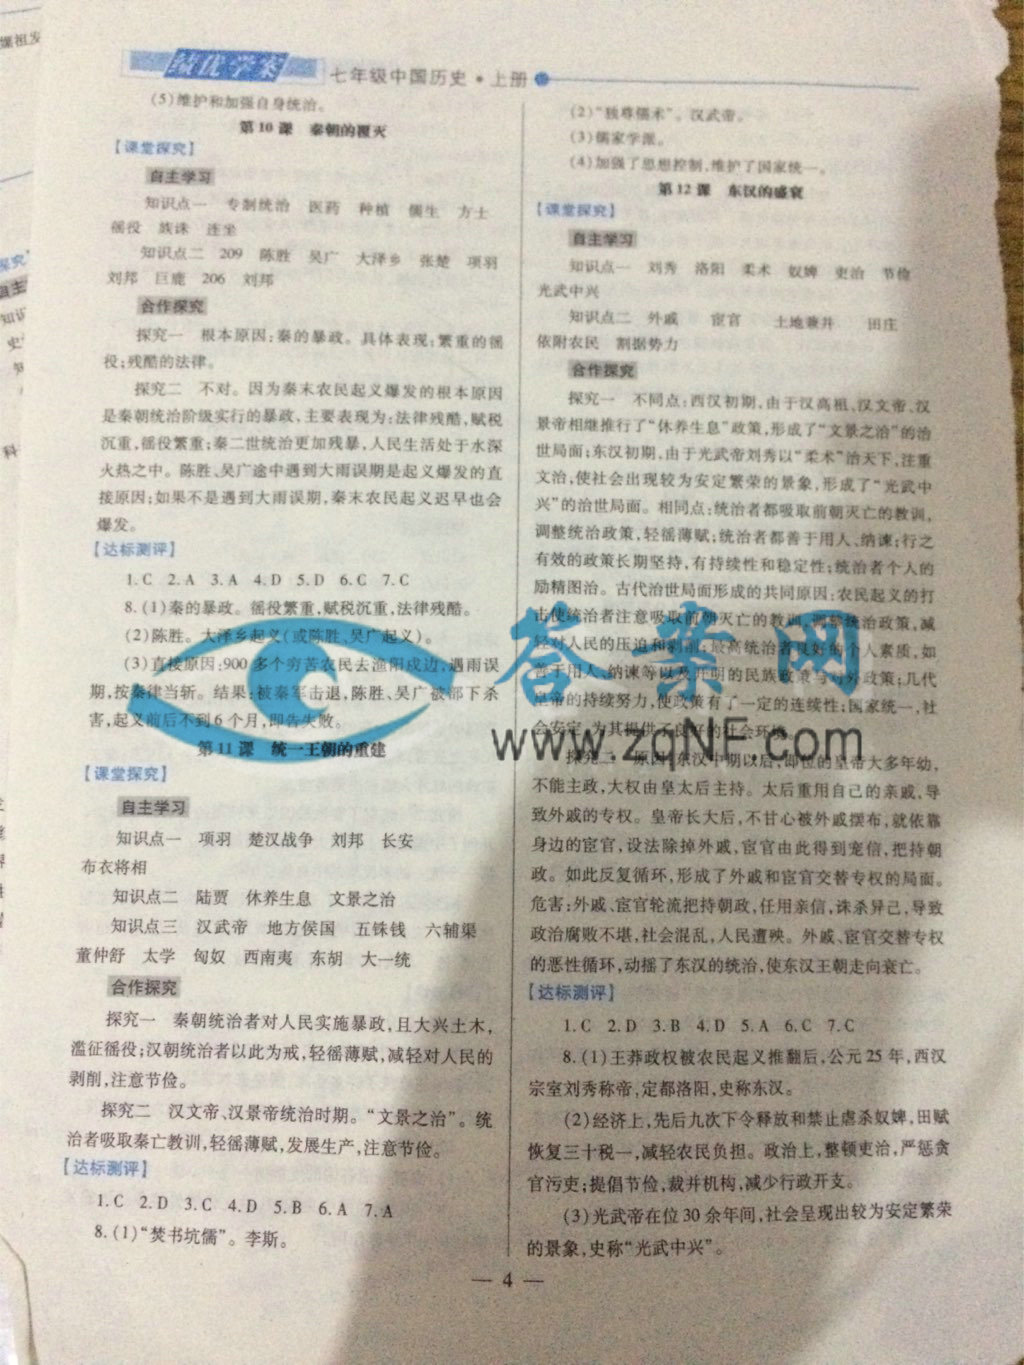 绩优学案
七年级中国历史·上册
(5)维护和加强自身统治。
第10课 秦朝的覆灭
【课堂探究】
自主学习
知识点一 专制统治 医药 种植 儒生 方士
徭役 族诛 连坐
知识点二 209 陈胜 吴广 大泽乡 张楚 项羽
刘邦 巨鹿 206 刘邦
合作探究
探究一 根本原因:秦的暴政。具体表现:繁重的徭
役;残酷的法律。
探究二 不对。因为秦末农民起义爆发的根本原因
是秦朝统治阶级实行的暴政,主要表现为:法律残酷,赋税
沉重,徭役繁重;秦二世统治更加残暴,人民生活处于水深
火热之中。陈胜、吴广途中遇到大雨误期是起义爆发的直
接原因;如果不是遇到大雨误期,秦末农民起义迟早也会
爆发。
【达标测评】
1.C 2.A 3.A 4.D 5.D 6.C 7.C
8.(1)秦的暴政。徭役繁重,赋税沉重,法律残酷。
(2)陈胜。大泽乡起义(或陈胜、吴广起义)。
(3)直接原因:900多个穷苦农民去渔阳戍边,遇雨误
期,按秦律当斩。结果:被秦军击退,陈胜、吴广被部下杀
害,起义前后不到6个月,即告失败。
第11课 统一王朝的重建
【课堂探究】
自主学习
知识点一 项羽 楚汉战争 刘邦 长安
布衣将相
知识点二 陆贾 休养生息 文景之治
知识点三 汉武帝 地方侯国 五铢钱 六辅渠
董仲舒 太学 匈奴 西南夷 东胡 大一统
合作探究
探究一 秦朝统治者对人民实施暴政,且大兴土木,
滥征徭役;汉朝统治者以此为戒,轻徭薄赋,减轻对人民的
剥削,注意节俭。
探究二 汉文帝、汉景帝统治时期。“文景之治”。统
治者吸取秦亡教训,轻徭薄赋,发展生产,注意节俭。
【达标测评】
1.C 2.D 3.C 4.D 5.B 6.A 7.A
8.(1)“焚书坑儒”。李斯。
(2)“独尊儒术”。汉武帝。
(3)儒家学派。
(4)加强了思想控制,维护了国家统一。
第12课 东汉的盛衰
【课堂探究】
自主学习
知识点一 刘秀 洛阳 柔术 奴婢 吏治 节俭
光武中兴
知识点二 外戚 宦官 土地兼并 田庄
依附农民 割据势力
合作探究
探究一 不同点:西汉初期,由于汉高祖、汉文帝、汉
景帝相继推行了“休养生息”政策,形成了“文景之治”的治
世局面;东汉初期,由于光武帝刘秀以“柔术”治天下,注重
文治,使社会出现较为安定繁荣的景象,形成了“光武中
兴”的治世局面。相同点:统治者都吸取前朝灭亡的教训,
调整统治政策,轻徭薄赋;统治者都善于用人、纳谏;行之
有效的政策长期坚持,有持续性和稳定性;统治者个人的
励精图治。古代治世局面形成的共同原因:农民起义的打
击使统治者注意吸取前朝灭亡的教训,调整统治政策,减
轻对人民的压迫和剥削;最高统治者良好的个人素质,如
善于用人、纳谏等以及开明的民族政策与对外政策;几代
皇帝的持续努力,使政策有了一定的连续性;国家统一,社
会安定,为其提供了良好的社会环境。
探究二 原因:东汉中期以后,即位的皇帝大多年幼,
不能主政,大权由皇太后主持。太后重用自己的亲戚,导
致外戚的专权。皇帝长大后,不甘心被外戚摆布,就依靠
身边的宦官,设法除掉外戚,宦官由此得到宠信,把持朝
政。如此反复循环,形成了外戚和宦官交替专权的局面。
危害:外戚、宦官轮流把持朝政,任用亲信,诛杀异己,导致
政治腐败不堪,社会混乱,人民遭殃。外戚、宦官交替专权
的恶性循环,动摇了东汉的统治,使东汉王朝走向衰亡。
【达标测评】
1.C 2.D 3.B 4.D 5.A 6.C 7.C
8.(1)王莽政权被农民起义推翻后,公元25年,西汉
宗室刘秀称帝,定都洛阳,史称东汉。
(2)经济上,先后九次下令释放和禁止虐杀奴婢,田赋
恢复三十税一,减轻农民负担。政治上,整顿吏治,严惩贪
官污吏;提倡节俭,裁并机构,减少行政开支。
(3)光武帝在位30余年间,社会呈现出较为安定繁荣
的景象,史称“光武中兴”。
— 4 —
答案网
www.zqNF.com